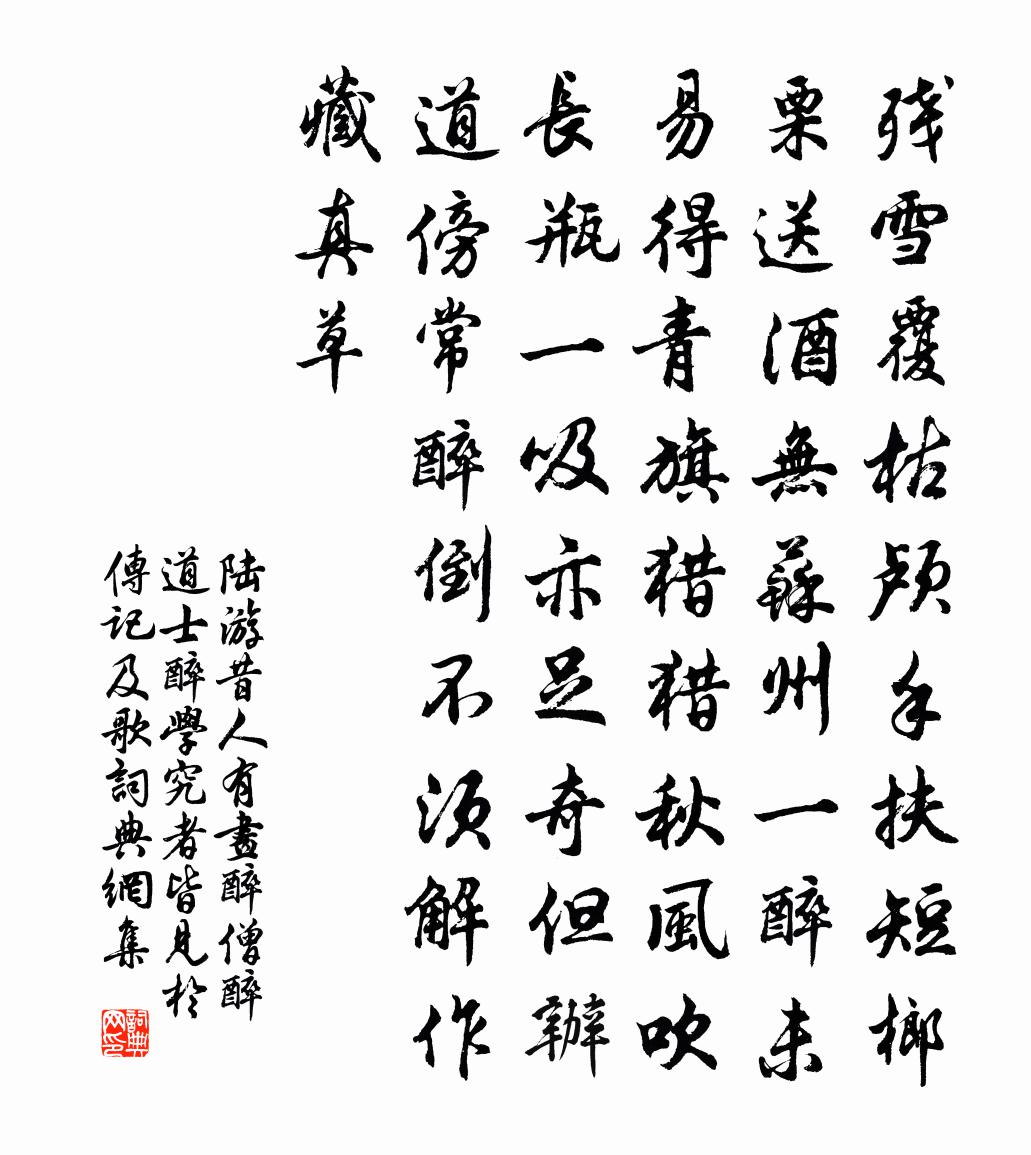 残雪覆枯颅手扶短榔
栗送酒無蘇州一醉未
易得青旗猎猎秋風吹
長瓶一吸亦足奇但辦
道傍常醉倒不須解作
藏真草
陆游昔人有畫醉僧醉
道士醉學究者皆見於
傳記及歌詞典網集
詞典网印